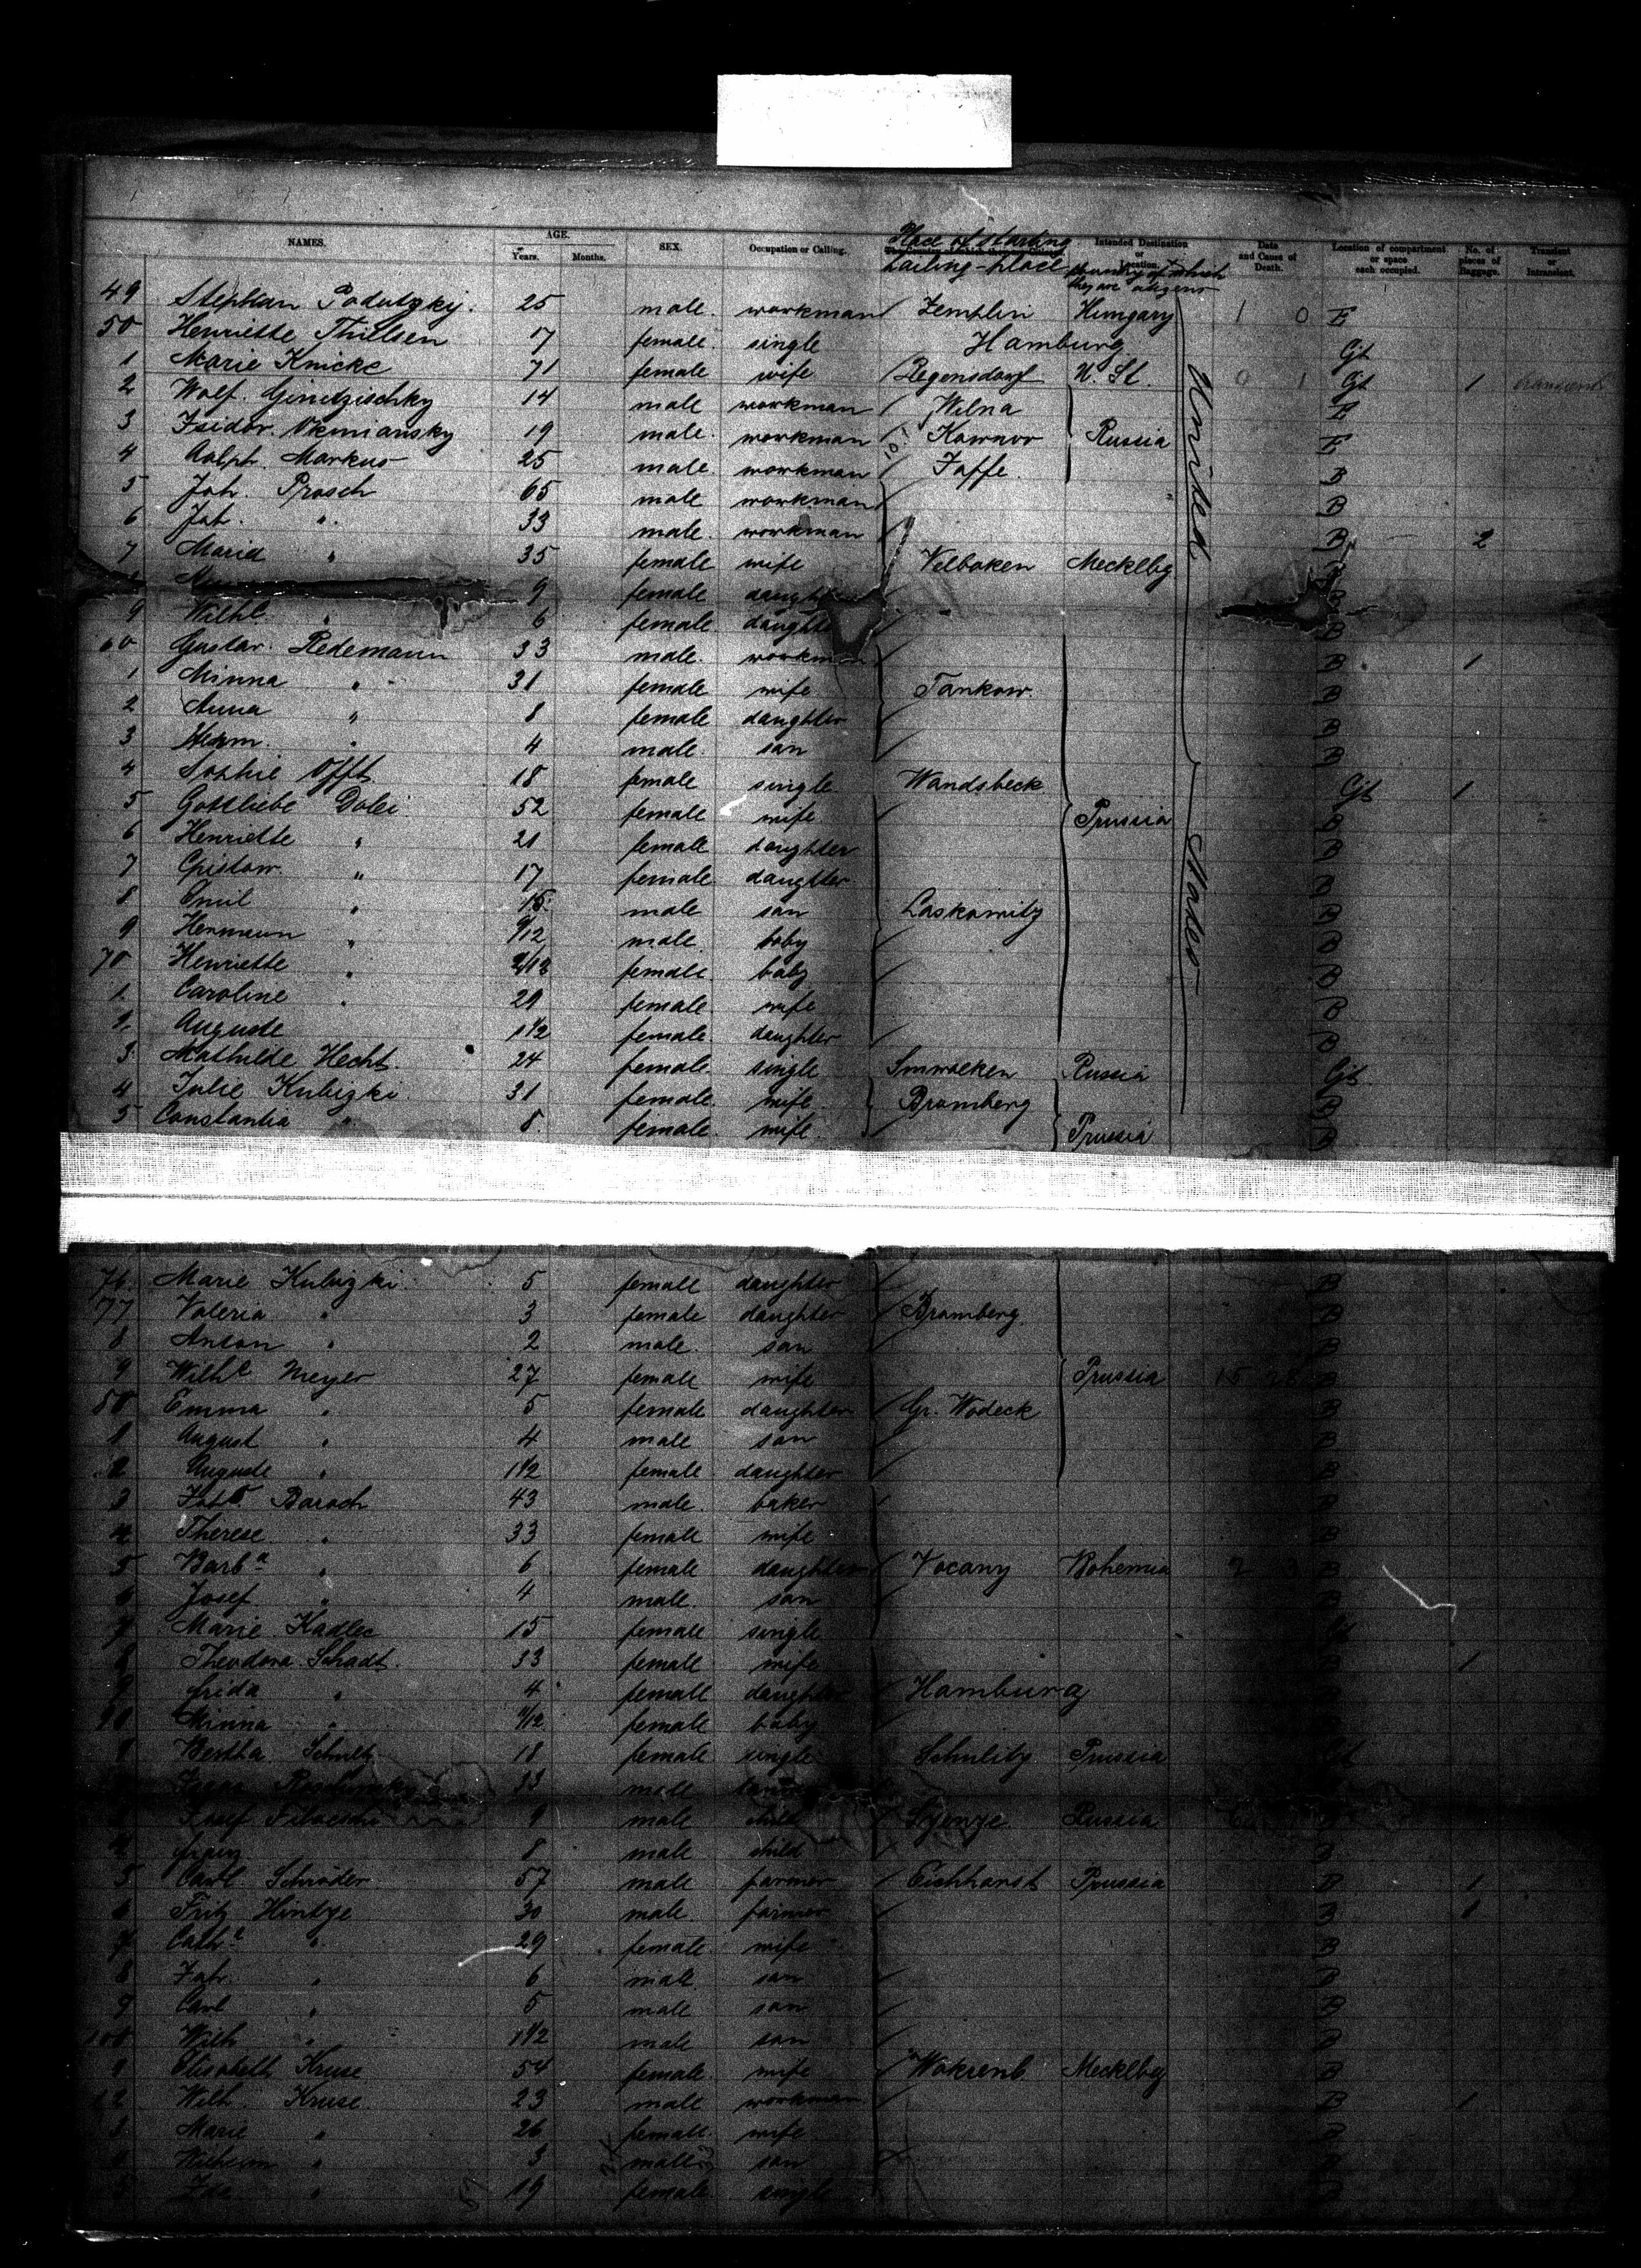 NAMES. AGE. Years. Months. SEX. Occupation or Calling. Place of starting Intended Destination or Location. Date and Cause of Death. Location of compartment or space each occupied. No. of pieces of Baggage. Transient or Intransient.
country of which they are citizens
49 Stephan Podutzkij. 25 male. workman Zemplin Hungary 1 0 E
50 Henriette Thielsen 17 female. single Hamburg Gt
1 Marie Knicke 71 female wife Regensdorf U. St. 0 1 Gt 1 transient
2 Wolf. Ginitzischky 14 male workman Wilna E
3 Isidor. 19 male. workman Kowno Russia E
4 Markus 25 male. workman Jaffe. B
5 Joh. Prosch 65 male workman B
6 Joh. " 33 male. workman B 2
7 Maria " 35 female wife Velboken Mecklbg
9 female daughter B
9 Wilhe " 6 female. daughter B
60 Gustav. Redemann 33 male. workman B 1
1 Minna " 31 female wife Tankow. B
2 Anna " 8 female daughter B
3 Herm. " 4 male. son B
4 Sophie Offt 18 female single Wandsbeck Gt 1
5 Gottliebe Dolei. 52 female wife Prussia B
6 Henriette " 21 female daughter B
7 " 17 female daughter B
8 Emil " 15 male son Laskowitz B
9 Hermann " 9/12 male. baby B
70 Henriette " 2/12 female baby B
1. Caroline " 29 female wife B
Auguste 1 1/2 female. daughter B
3. Mathilde Hecht. 24 female. single Russia Gt.
4 Julie Kubizki. 31 female. wife Bromberg B
5 Constantia " 8. female. wife. Prussia B
United States
76. Marie Kubizki. 5 female daughter B
77 Valeria " 3 female daughter Bromberg. B
8 Anton " 2 male. son B
9 Wilhe Meyer 27 female wife Prussia B
80 Emma " 5 female daughter Gr. Wodeck B
1 August " 4 male son B
2 Auguste " 1 1/2 female daughter B
3 Barosch 43 male. baker B
4 Therese " 33 female wife B
5 Barba " 6 female daughter Vocany Bohemia 2 3 B
6 Josef. " 4 male. son B
7 Marie Kadlec 15 female single Gt
8 Theodora Schadt. 33 female. wife 1
9 Frida " 4 female daughter Hamburg
90 Minna " female baby
1 Bertha Schultz. 18 female single Schulitz Prussia Gt
33 male
Josef 9 male child Russia
4 8 male child
5 Carl Schröder 57 male farmer Eichhorst Prussia B 1
6 Fritz Hintze 30 male. farmer B 1
7 Cathe " 29 female wife B
8 Joh. " 6 male son B
9 Carl " 5 male son B
100 Wilh " 1 1/2 male son B
1 Elisabeth Kruse 54 female wife Mecklbg B
2 Wilh. Kruse. 23 male workman B 1
3 Marie " 26 female. wife B
4 Wilhelm " 3 male son B
5 Ida " 19 female single